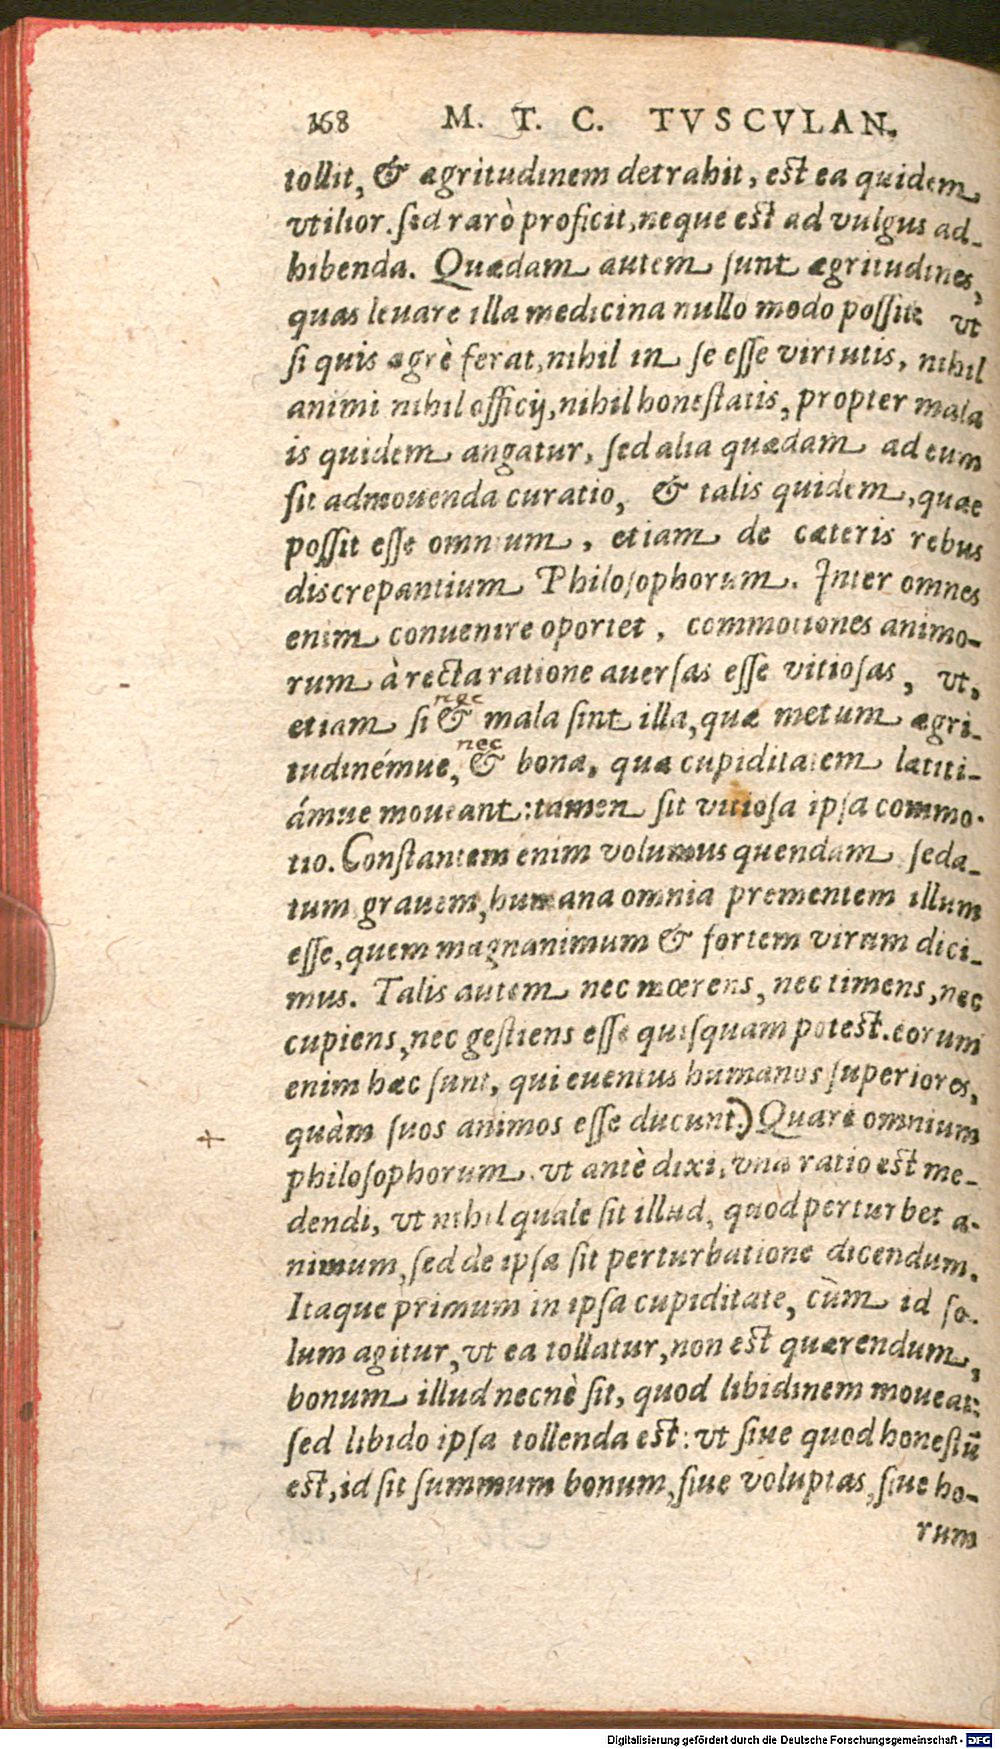 168 M. T. C. TVSCVLAN.
tollit, & ægritudinem detrahit, est ea quidem
vtilior. sed rarò proficit, neque est ad vulgus ad-
hibenda. Quædam autem sunt ægritudines,
quas leuare illa medicina nullo modo possit: vt
si quis ægrè ferat, nihil in se esse virtutis, nihil
animi nihil officij, nihil honestatis, propter mala
is quidem angatur, sed alia quædam ad eum
sit admouenda curatio, & talis quidem, quae
possit esse omnium, etiam de cæteris rebus
discrepantium Philosophorum. Inter omnes
enim conuenire oportet, commotiones animo-
rum à recta ratione auersas esse vitiosas, vt,
nec
etiam si & mala sint illa, quæ metum ægri-
nec
tudinémue, & bona, quæ cupiditatem lætiti-
ámue moueant: tamen sit vitiosa ipsa commo-
tio. Constantem enim volumus quendam seda-
tum grauem, humana omnia prementem illum
esse, quem magnanimum & fortem virum dici-
mus. Talis autem nec mœrens, nec timens, nec
cupiens, nec gestiens esse quisquam potest. eorum
enim hæc sunt, qui euentus humanos superiores,
quàm suos animos esse ducunt.) Quare omnium
philosophorum, vt antè dixi, vna ratio est me-
dendi, vt nihil quale sit illud, quod perturbet a-
nimum, sed de ipsa sit perturbatione dicendum.
Itaque primum in ipsa cupiditate, cùm id so-
lum agitur, vt ea tollatur, non est quærendum,
bonum illud necnè sit, quod libidinem moueat:
sed libido ipsa tollenda est: vt siue quod honestū
est, id sit summum bonum, siue voluptas, siue ho-
rum
Digitalisierung gefördert durch die Deutsche Forschungsgemeinschaft - DFG